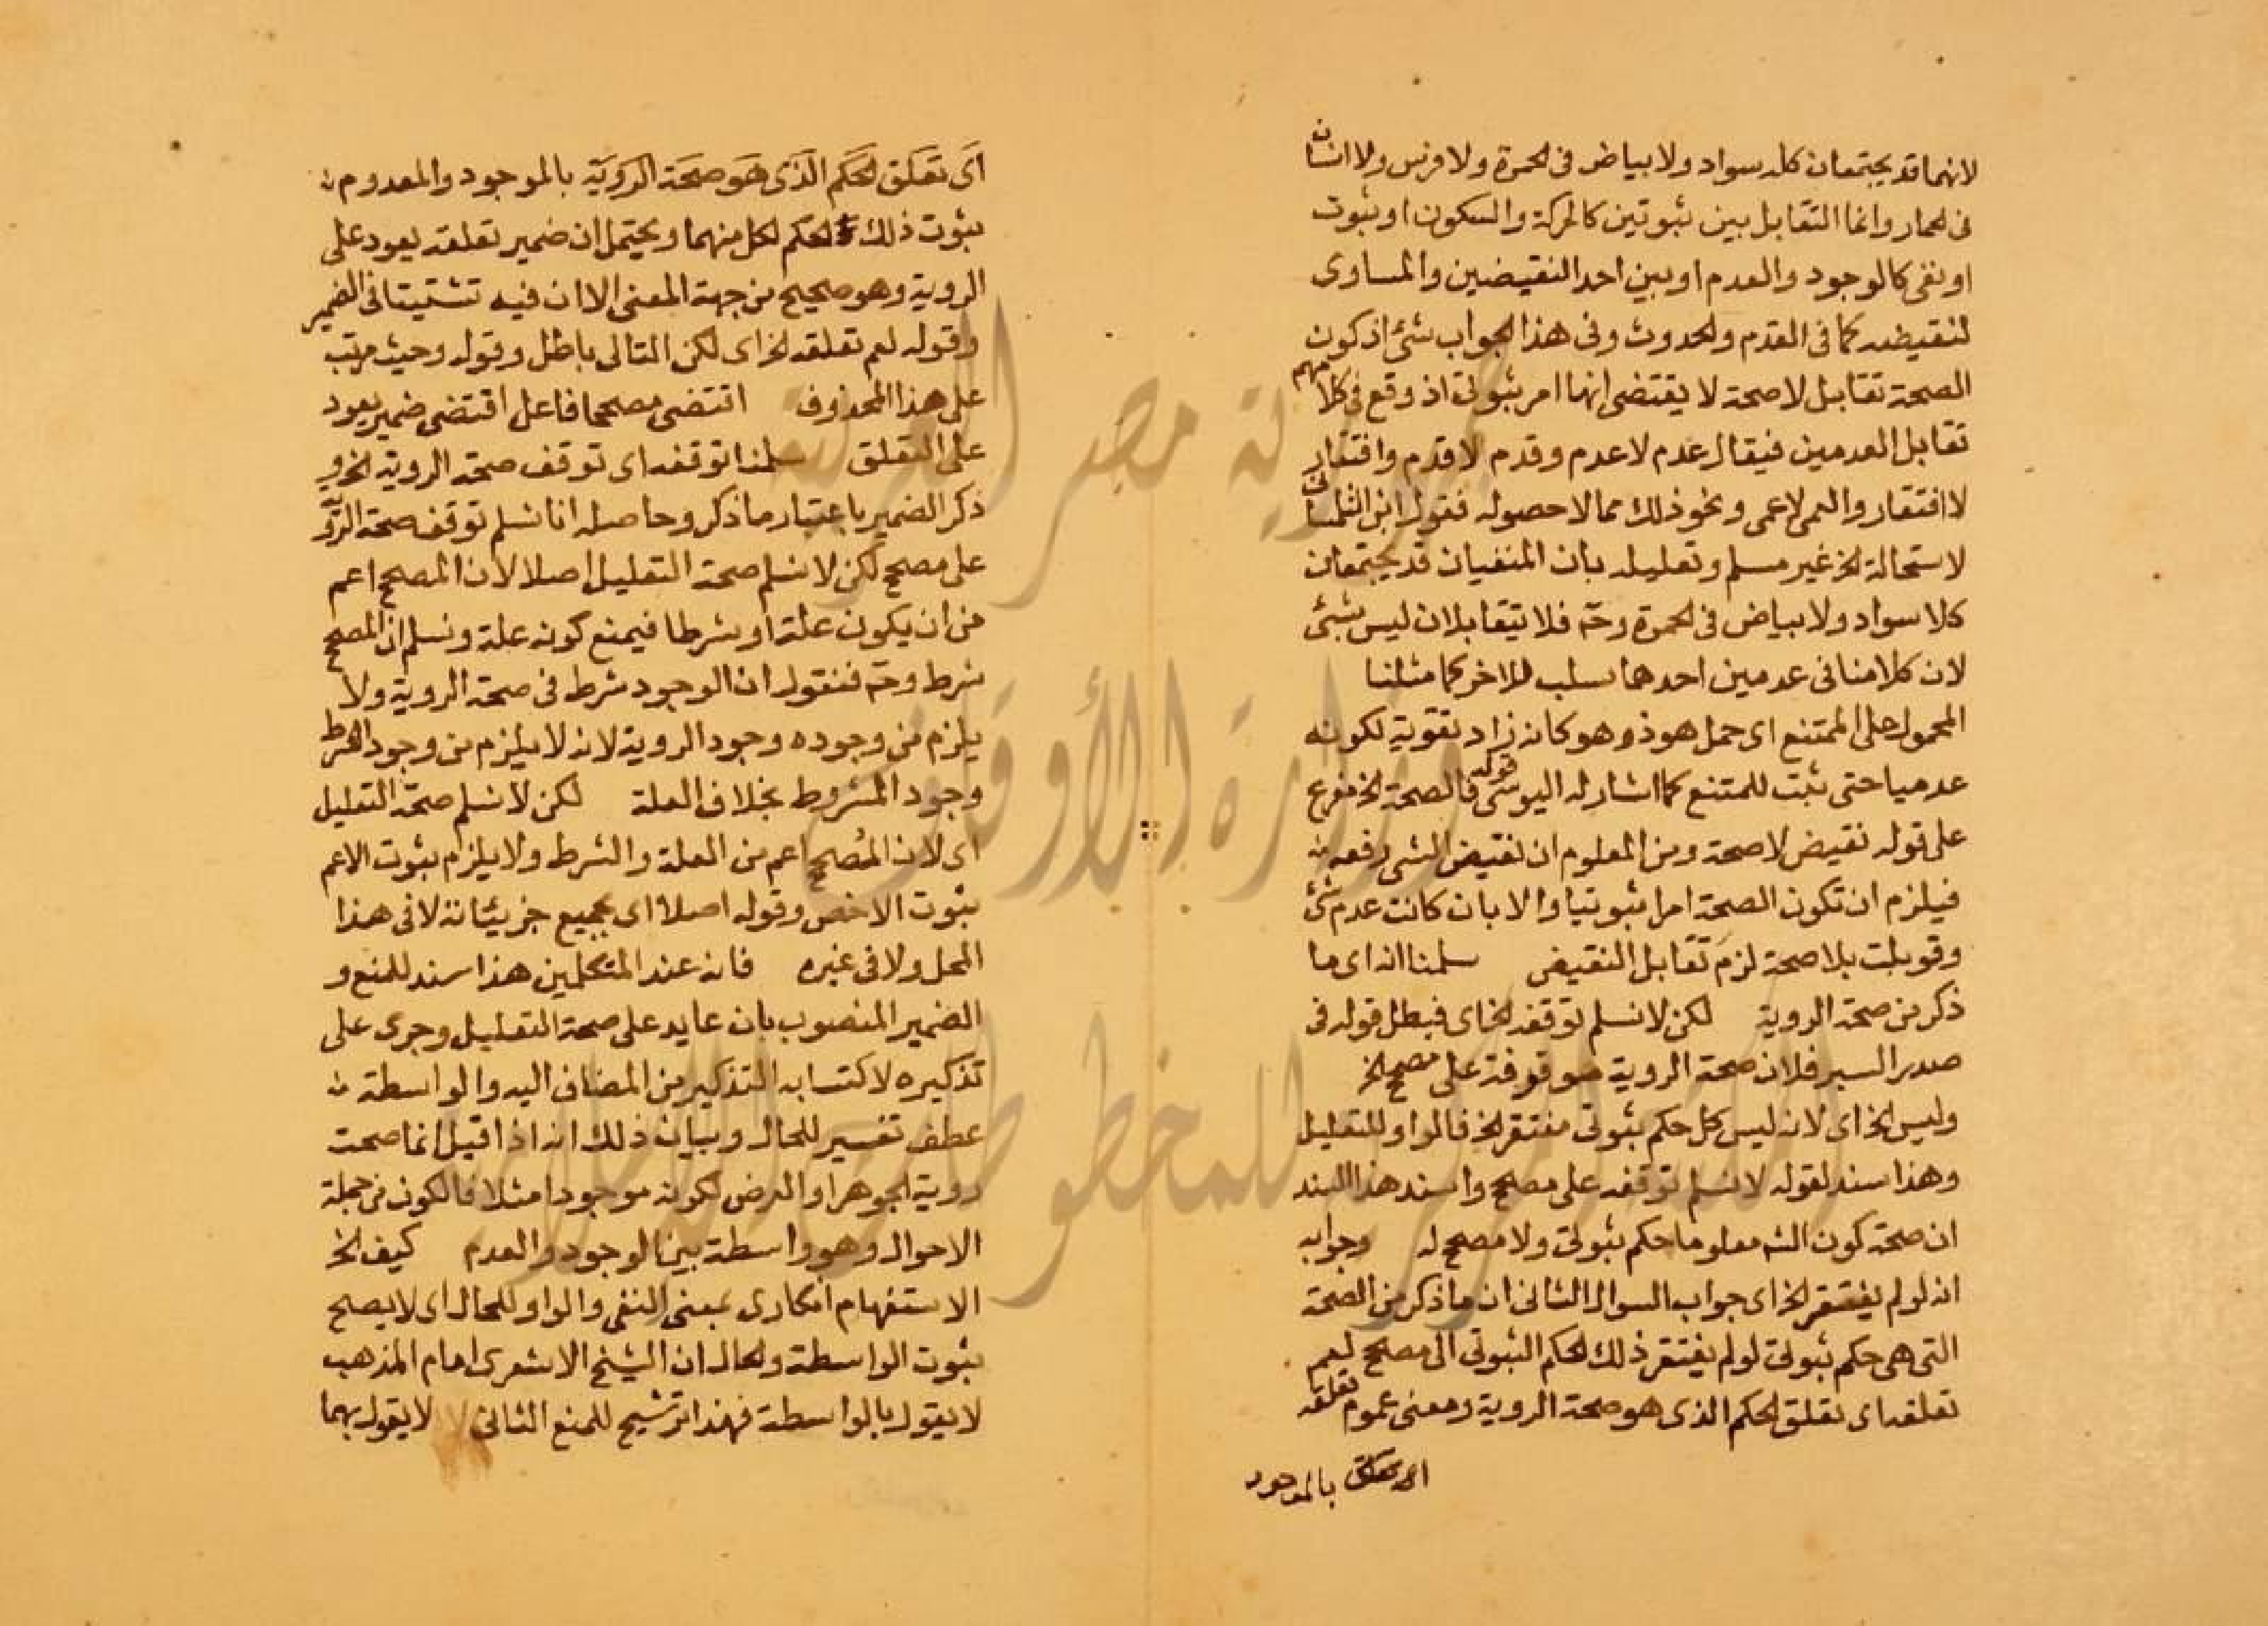 لانهما قد يجتمعان كلا سواد ولا بياض فى الحمرة ولا فرس ولا انسان
فى الحمار وانما التقابل بين ثبوتين كالحركة والسكون او ثبوت
او نفى كالوجود والعدم او بين احد النقيضين والمساوى
لنقيضه كما فى القدم والحدوث وفى هذا الجواب شئ اذ كون
الصحة تقابل لا صحة لا يقتضى انها امر ثبوتى اذ وقع فى كلامهم
تقابل العدمين فيقال عدم لا عدم وقدم لا قدم وافتقار
لا افتقار والعمى لا عمى ونحو ذلك مما لا حصوله فقول ابن التلمسانى
لاستحالة الخ غير مسلم وتعليله بان المنفيان قد يجتمعان
كلا سواد ولا بياض فى الحمرة وح فلا تتقابلان ليس بشئ
لان كلامنا فى عدمين احدهما سلب للاخر كما مثلنا
المحمول على الممتنع اى حمل هوذ وهو كانه زاد تقوية لكونه
عدميا حتى ثبت للمتنع كما اشار له اليوسى قوله فالصحة الخ مفرع
على قوله نقيض لا صحة ومن المعلوم ان نقيض الشى رفعه
فيلزم ان تكون الصحة امرا ثبوتيا والا بان كانت عدم شئ
وقوبلت بلا صحة لزم تقابل النقيض سلمنا انه اى ما
ذكر من صحة الروية لكن لا نسلم توقفه الخ اى فبطل قوله فى
صدر السبر فلان صحة الروية موقوفة على مصحح الخ
وليس الخ اى لانه ليس كل حكم ثبوتى مفتقر الخ فالواو للتعليل
وهذا سند لقوله لا نسلم توقفه على مصحح واسند هذا السند
ان صحة كون الشئ معلوما حكم ثبوتى ولا مصحح له وجوابه
انه لو لم يفتقر الخ اى جواب السوال الثانى ان ما ذكر من الصحة
التى هى حكم ثبوتى لو لم يفتقر ذلك الحكم الثبوتى الى مصحح لعم
تعلقه اى تعلق الحكم الذى هو صحة الروية ومعنى عموم تعلقه
بالموجود
اى تعلق الحكم الذى هو صحة الروية بالموجود والمعدوم
ثبوت ذلك الحكم لكل منهما ويحتمل ان ضمير تعلقه يعود على
الروية وهو صحيح من جهة المعنى الا ان فيه تشتيتا فى الضمير
وقوله لعم تعلقه الخ اى لكن التالى باطل وقوله وحيث مرتب
على هذا المحذوف اقتضى مصححا فاعل اقتضى ضمير يعود
على التعلق سلمنا توقفه اى توقف صحة الروية الخ و
ذكر الضمير باعتبار ما ذكر وحاصله انا نسلم توقف صحة الروية
على مصحح لكن لا نسلم صحة التعليل اصلا لان المصحح اعم
من ان يكون علة او شرطا فيمنع كونه علة ونسلم ان المصحح
شرط وح فنقول ان الوجود شرط فى صحة الروية ولا
يلزم من وجوده وجود الروية لانه لا يلزم من وجود الشرط
وجود المشروط بخلاف العلة لكن لا نسلم صحة التعليل
اى لان المصحح اعم من العلة والشرط ولا يلزم بثبوت الاعم
ثبوت الاخص وقوله اصلا اى بجميع جزيئاته لا فى هذا
المحل ولا فى غيره فانه عند المتكلمين هذا سند للمنع و
الضمير المنصوب بان عايد على صحة التعليل وجرى على
تذكيره لاكتسابه التذكير من المضاف اليه والواسطة
عطف تفسير للحال وبيان ذلك انه اذا قيل انما صحت
روية الجوهر او العرض لكونه موجودا مثلا فالكون من جملة
الاحوال وهو واسطة بين الوجود والعدم كيف الخ
الاستفهام انكارى بمعنى النفى والواو للحال اى لا يصح
ثبوت الواسطة والحال ان الشيخ الاشعرى امام المذهب
لا يقول بالواسطة فهذا ترشيح للمنع الثانى لا يقول بهما
جمهورية مصر العربية
وزارة الأوقاف
المكتبة المركزية للمخطوطات الإسلامية